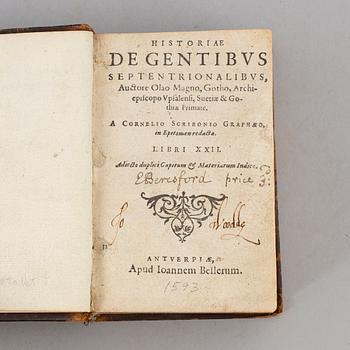 HISTORIAE
DE GENTIBVS
SEPTENTRIONALIBVS,
Auctore Olao Magno, Gotho, Archi-
episcopo Vpsalensi, Suetiæ & Go-
thiæ Primate.
A CORNELIO SCRIBONIO GRAPHÆO,
in Epitomen redacta.
LIBRI XXII.
Adiecto duplici Capitum & Materiarum Indice.
E Beresford price
Jo
ANTVERPIÆ,
Apud Ioannem Bellerum.
1593